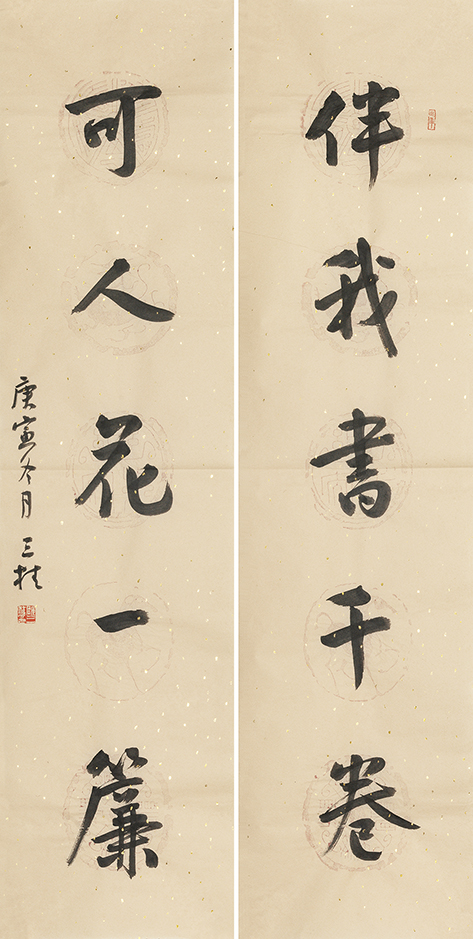 伴我書千卷
可人花一簾
庚寅冬月 三桂